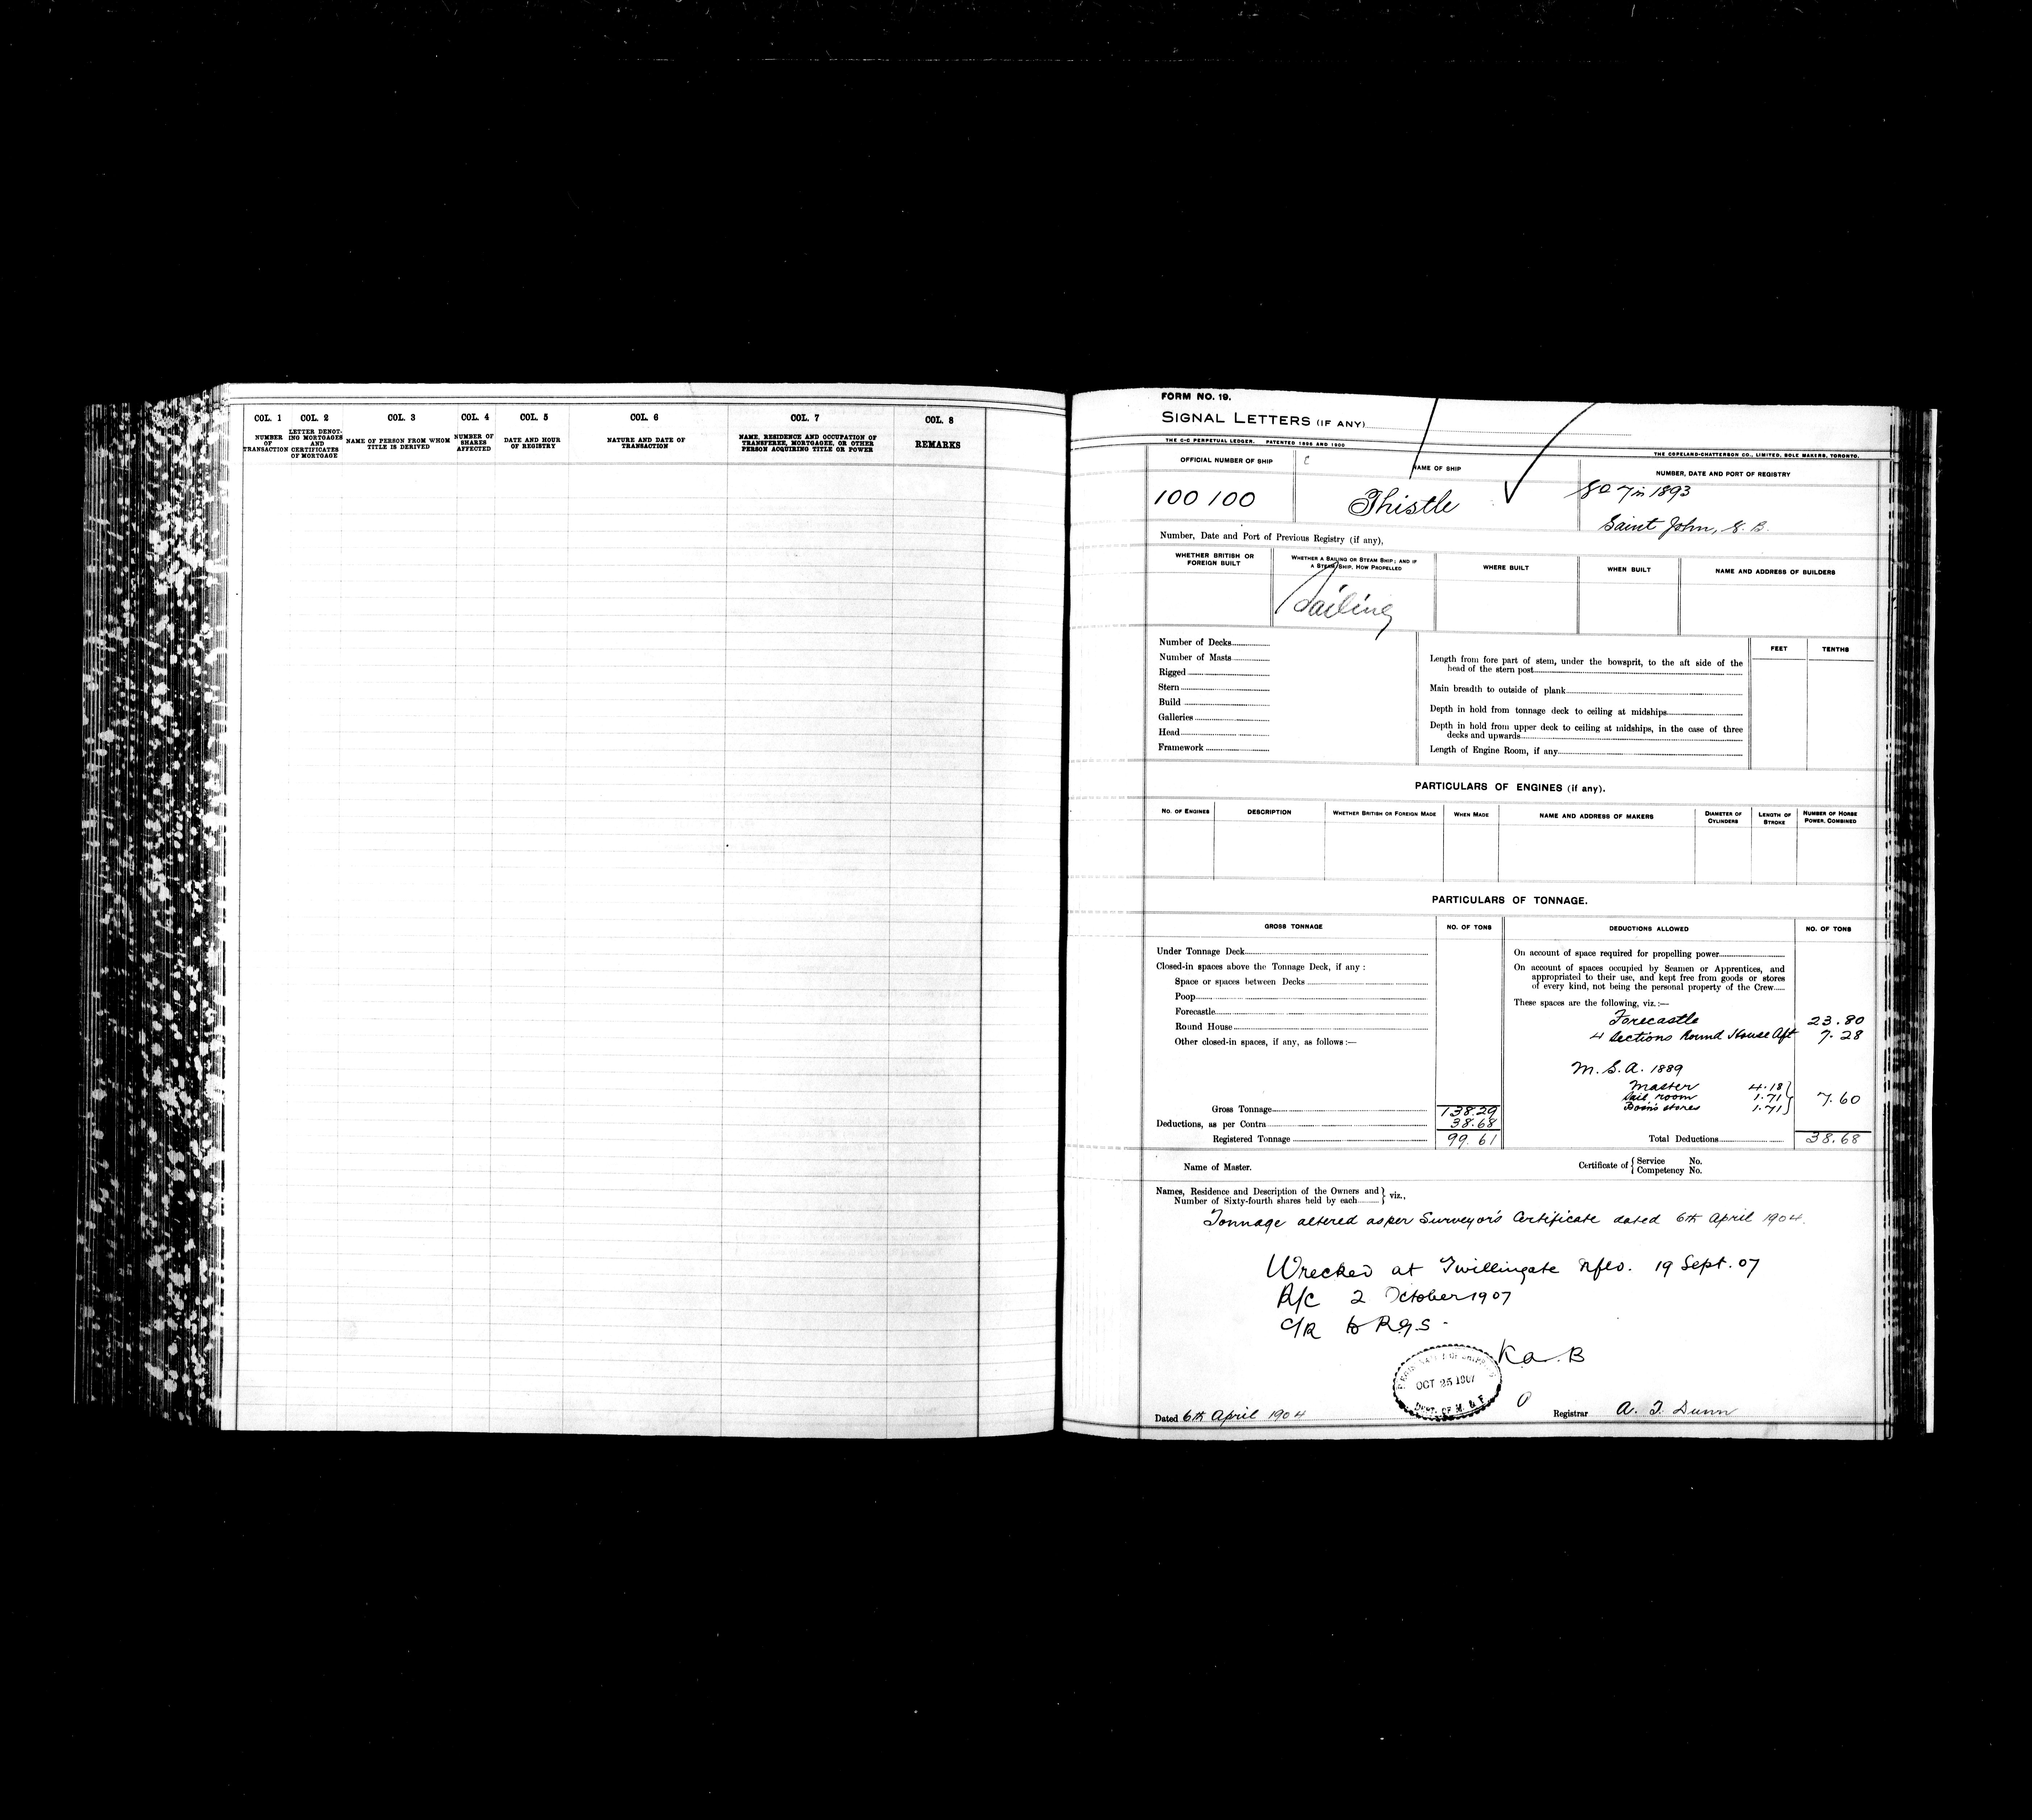 COL. 1 COL. 2 COL. 3 COL. 4 COL. 5 COL. 6 COL. 7 COL. 8
NUMBER OF TRANSACTION
LETTER DENOT-ING MORTGAGES AND CERTIFICATES OF MORTGAGE
NAME OF PERSON FROM WHOM TITLE IS DERIVED
NUMBER OF SHARES AFFECTED
DATE AND HOUR OF REGISTRY
NATURE AND DATE OF TRANSACTION
NAME, RESIDENCE AND OCCUPATION OF TRANSFEREE, MORTGAGEE, OR OTHER PERSON ACQUIRING TITLE OR POWER
REMARKS
FORM NO. 19.
SIGNAL LETTERS (IF ANY)
THE C-C PERPETUAL LEDGER. PATENTED 1896 AND 1900
THE COPELAND-CHATTERSON CO., LIMITED, SOLE MAKERS, TORONTO.
OFFICIAL NUMBER OF SHIP
C
NAME OF SHIP
NUMBER, DATE AND PORT OF REGISTRY
100 100
Thistle
in 1893
Saint John, N. B.
Number, Date and Port of Previous Registry (if any),
WHETHER BRITISH OR FOREIGN BUILT
WHETHER A SAILING OR STEAM SHIP; AND IF A STEAM SHIP, HOW PROPELLED
WHERE BUILT
WHEN BUILT
NAME AND ADDRESS OF BUILDERS
Sailing
Number of Decks
Number of Masts
Rigged
Stern
Build
Galleries
Head
Framework
FEET TENTHS
Length from fore part of stem, under the bowsprit, to the aft side of the
head of the stern post
Main breadth to outside of plank
Depth in hold from tonnage deck to ceiling at midships
Depth in hold from upper deck to ceiling at midships, in the case of three
decks and upwards
Length of Engine Room, if any
PARTICULARS OF ENGINES (if any).
NO. OF ENGINES
DESCRIPTION
WHETHER BRITISH OR FOREIGN MADE
WHEN MADE
NAME AND ADDRESS OF MAKERS
DIAMETER OF CYLINDERS
LENGTH OF STROKE
NUMBER OF HORSE POWER, COMBINED
PARTICULARS OF TONNAGE.
GROSS TONNAGE
NO. OF TONS
DEDUCTIONS ALLOWED
NO. OF TONS
Under Tonnage Deck
Closed-in spaces above the Tonnage Deck, if any :
Space or spaces between Decks
Poop
Forecastle
Round House
Other closed-in spaces, if any, as follows :—
Gross Tonnage 138.29
Deductions, as per Contra 38.68
Registered Tonnage 99.61
On account of space required for propelling power
On account of spaces occupied by Seamen or Apprentices, and
appropriated to their use, and kept free from goods or stores
of every kind, not being the personal property of the Crew
These spaces are the following, viz.:—
Forecastle 23.80
4 Sections Round House Aft 7.28
M. S. A. 1889
Master 4.18
Sail room 1.71 7.60
Bosn's stores 1.71
Total Deductions 38.68
Name of Master.
Certificate of { Service No.
Competency No.
Names, Residence and Description of the Owners and
Number of Sixty-fourth shares held by each } viz.,
Tonnage altered as per Surveyor's Certificate dated 6th April 1904.
Wrecked at Twillingate Nfld. 19 Sept. 07
R/C 2 October 1907
C/R to R.G.S.
OCT 25 1907
DEPT. OF M. & F.
Dated 6th April 1904
Registrar A. T. Dunn